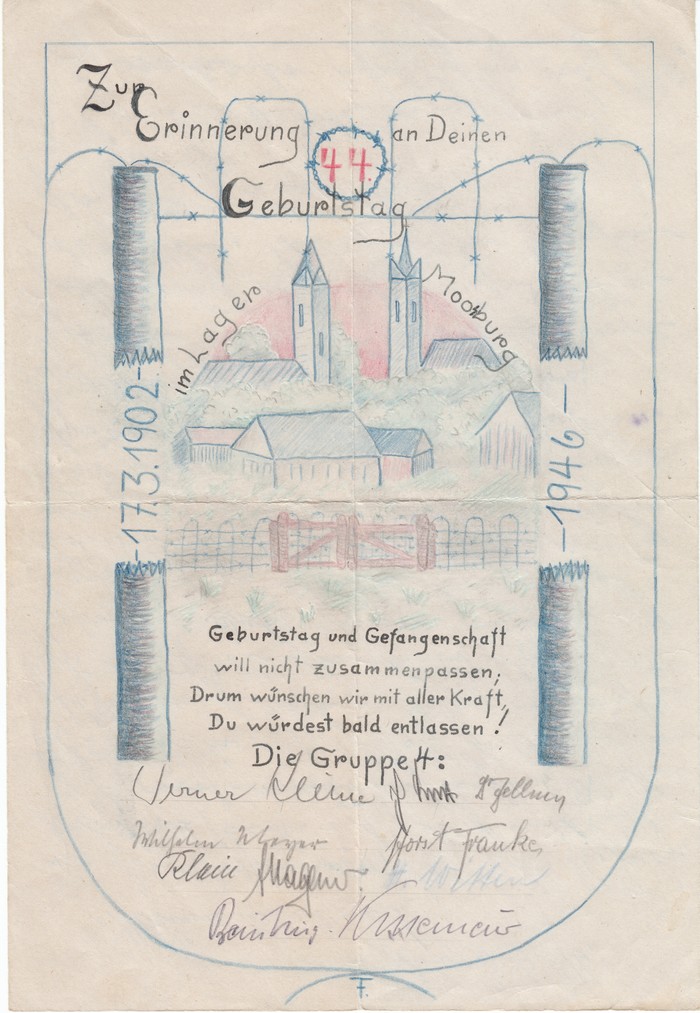 Zur
Erinnerung an Deinen
44.
Geburtstag
im Lager Moosburg
-17.3.1902-
-1946-
Geburtstag und Gefangenschaft
will nicht zusammenpassen,
Drum wünschen wir mit aller Kraft,
Du würdest bald entlassen!
Die Gruppe 4:
Werner Kleine
Wilhelm Meyer Horst Franke
Klein Wagner
F.